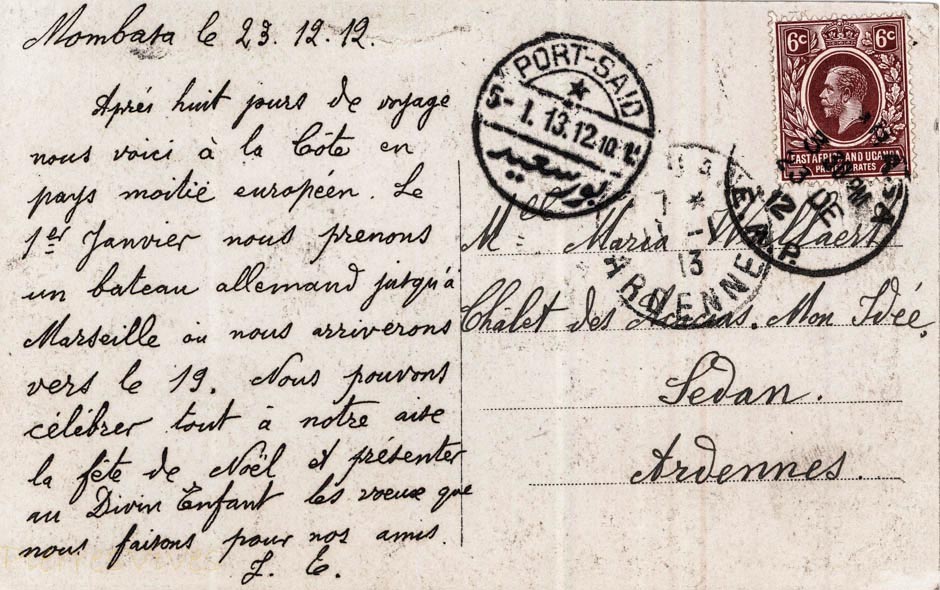 Mombasa le 23.12.12.
Après huit jours de voyage
nous voici à la Côte en
pays moitié européen. Le
1er Janvier nous prenons
un bateau allemand jusqu'à
Marseille où nous arriverons
vers le 19. Nous pouvons
célébrer tout à notre aise
la fête de Noël et présenter
au Divin Enfant les vœux que
nous faisons pour nos amis.
J. E.
PORT-SAID
5- 1.13.12.10
بور سعيد
6c 6c
EAST AFRICA AND UGANDA
PROTECTORATES
23 DE
12
E.A.P.
7 * -1
13
ARDENNE
Mlle Maria
Châlet des Acacias. Mon Idée,
Sedan.
Ardennes.